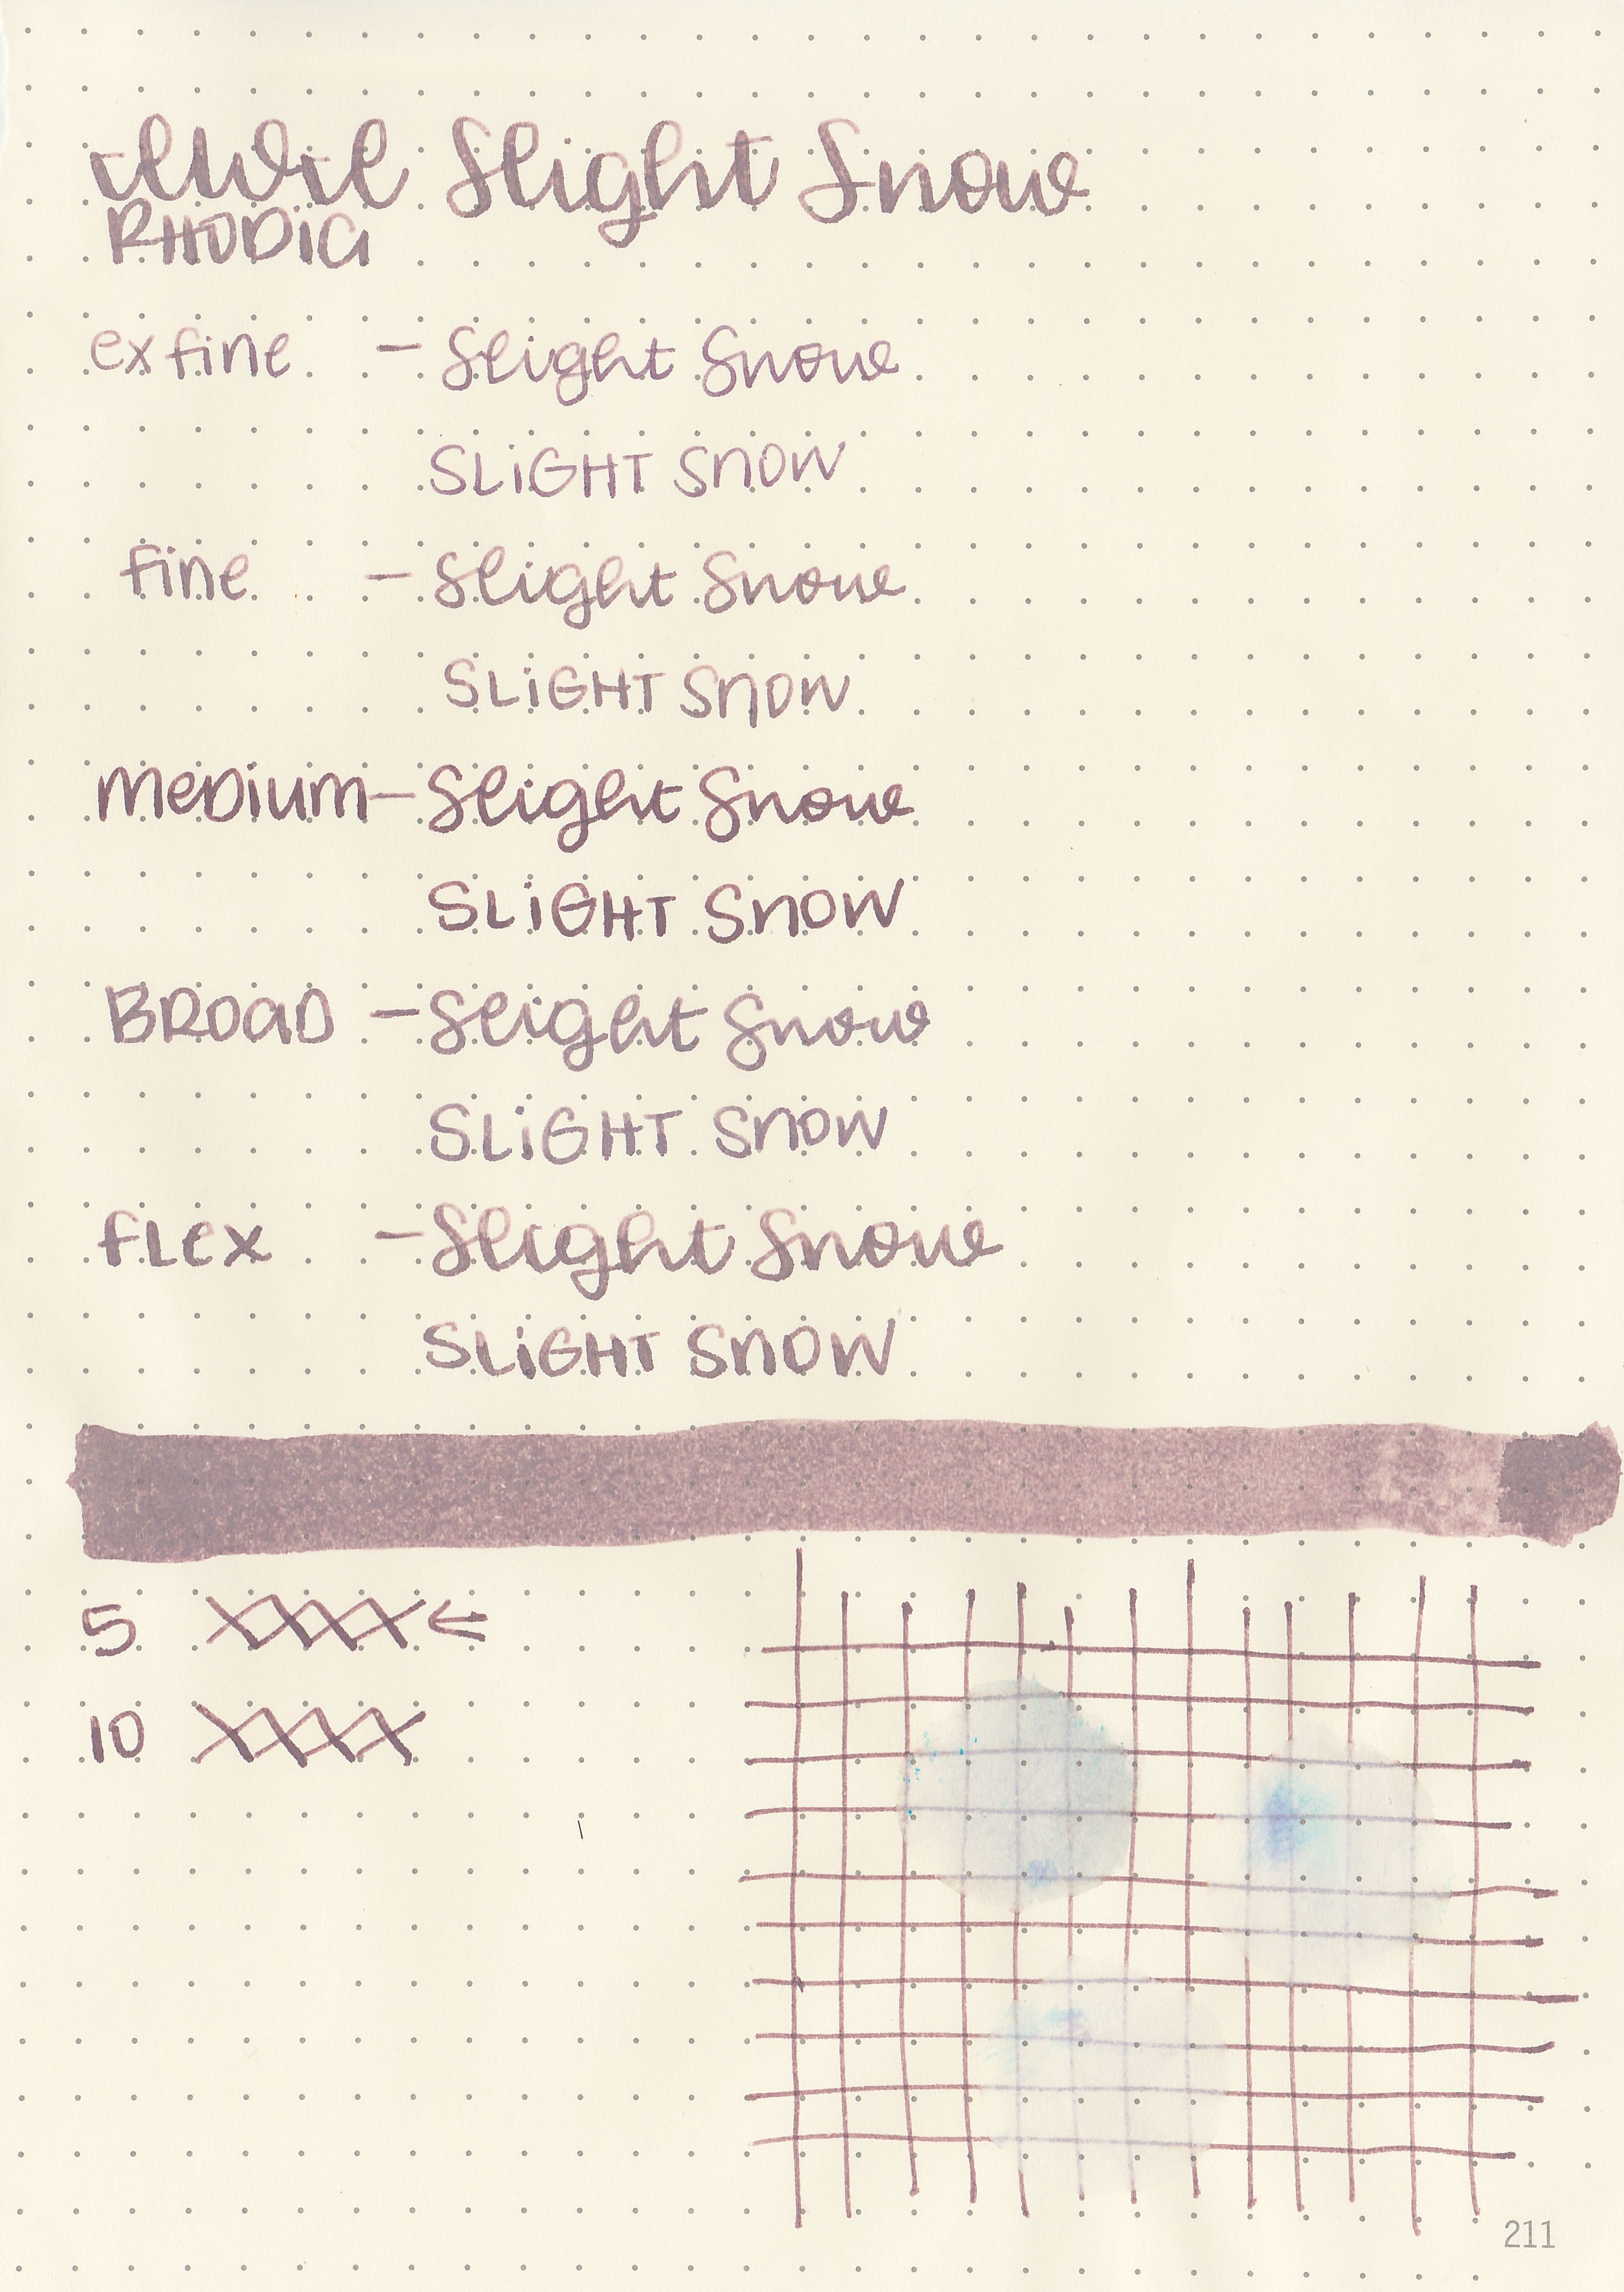 iLWiL Slight Snow
RHODIA
exfine - Slight Snow
SLiGHT SNOW
fine - Slight Snow
SLiGHT SNOW
MeDium - Slight Snow
SLiGHT SNOW
BROAD - Slight Snow
SLiGHT SNOW
fLex - Slight Snow
SLiGHT SNOW
5 XXXX ←
10 XXXX
211